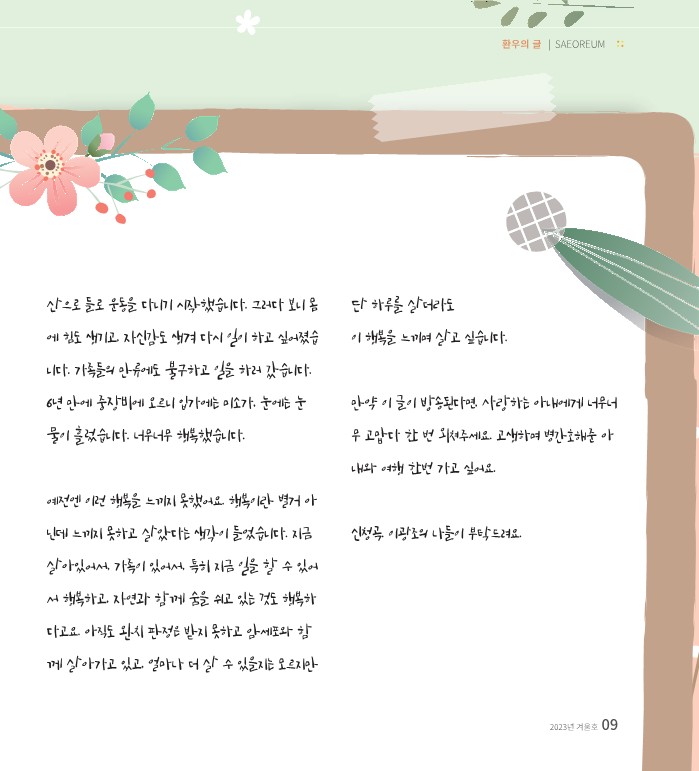 환우의 글 | SAEOREUM
산으로 들로 운동을 다니기 시작했습니다. 그러다 보니 몸
에 힘도 생기고, 자신감도 생겨 다시 일이 하고 싶어졌습
니다. 가족들의 만류에도 불구하고 일을 하러 갔습니다.
6년 만에 중장비에 오르니 입가에는 미소가, 눈에는 눈
물이 흘렀습니다. 너무너무 행복했습니다.
예전엔 이런 행복을 느끼지 못했어요. 행복이란 별거 아
닌데 느끼지 못하고 살았다는 생각이 들었습니다. 지금
살아있어서, 가족이 있어서, 특히 지금 일을 할 수 있어
서 행복하고, 자연과 함께 숨을 쉬고 있는 것도 행복하
다고요. 아직도 완치 판정은 받지 못하고 암세포와 함
께 살아가고 있고, 얼마나 더 살 수 있을지는 모르지만
단 하루를 살더라도
이 행복을 느끼며 살고 싶습니다.
만약 이 글이 방송된다면, 사랑하는 아내에게 너무너
무 고맙다 한 번 외쳐주세요. 고생하며 병간호해준 아
내와 여행 한번 가고 싶어요.
신청곡, 이광조의 나들이 부탁드려요.
2023년 겨울호 09